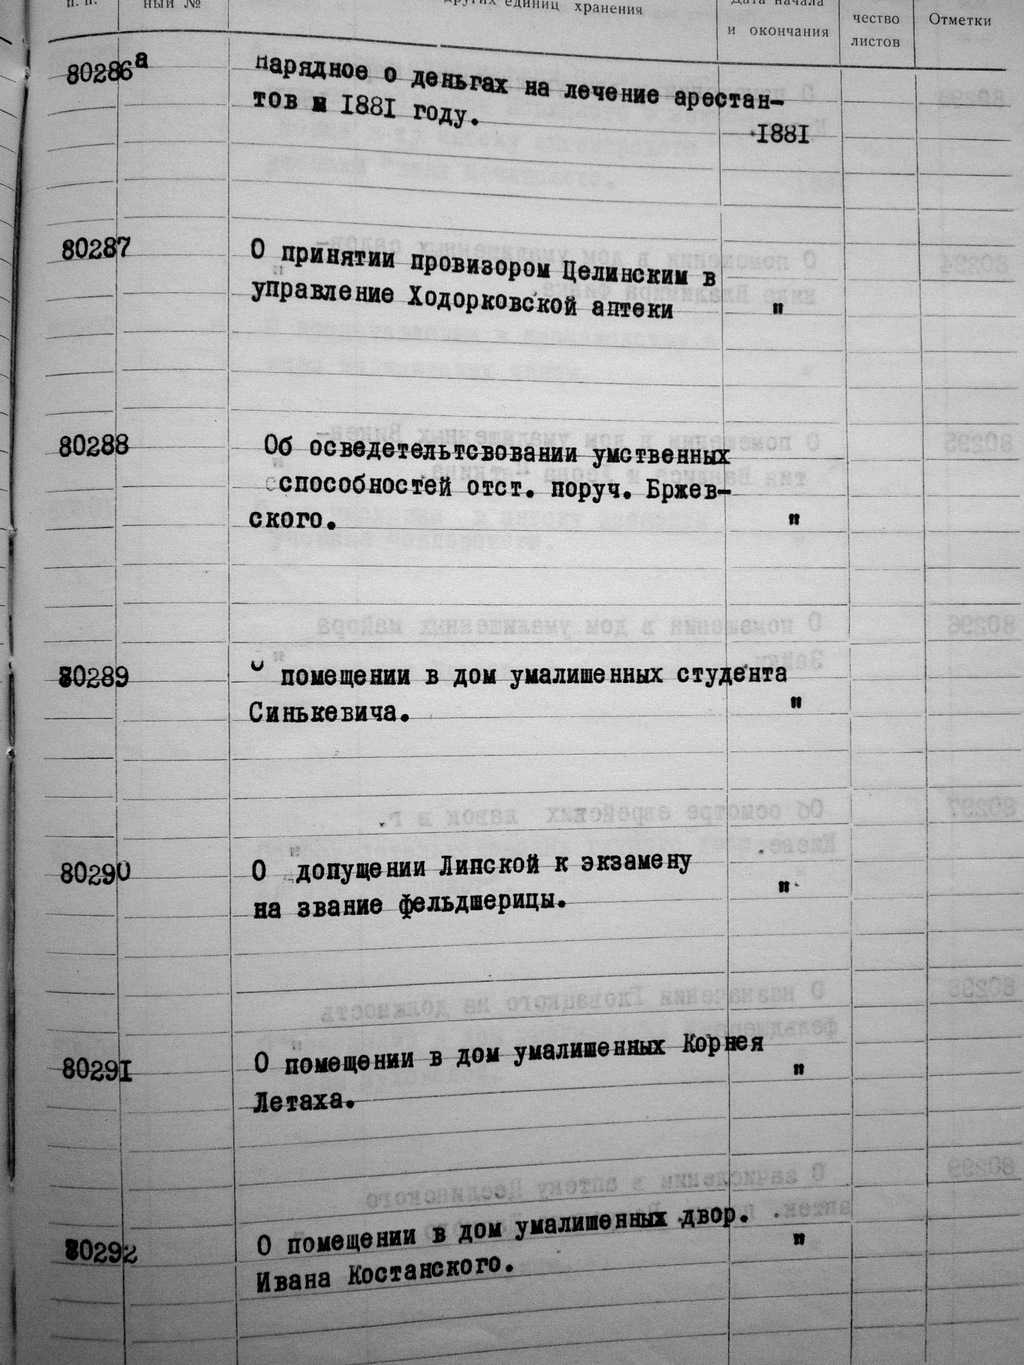 п. п.
ный №
других единиц хранения
Дата начала
и окончания
чество
листов
Отметки
80286а
Нарядное о деньгах на лечение арестан-
тов в 1881 году.
1881
80287
О принятии провизором Целинским в
управление Ходорковской аптеки
"
80288
Об осведетельтсвовании умственных
способностей отст. поруч. Бржев-
ского.
"
80289
О помещении в дом умалишенных студента
Синькевича.
"
80290
О допущении Липской к экзамену
на звание фельдшерицы.
"
80291
О помещении в дом умалишенных Корнея
Летаха.
"
80292
О помещении в дом умалишенных двор.
Ивана Костанского.
"